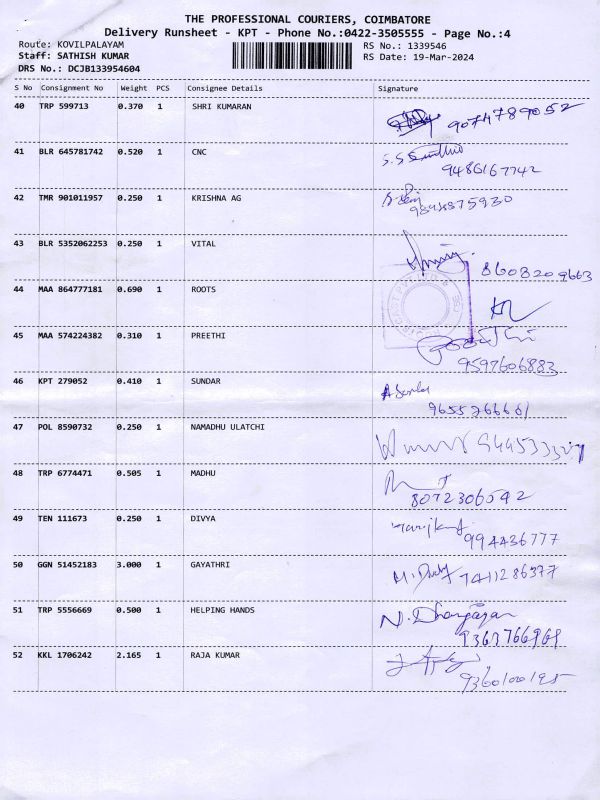 THE PROFESSIONAL COURIERS, COIMBATORE
Delivery Runsheet - KPT - Phone No.:0422-3505555 - Page No.:4
Route: KOVILPALAYAM RS No.: 1339546
Staff: SATHISH KUMAR RS Date: 19-Mar-2024
DRS No.: DCJB133954604
S No Consignment No Weight PCS Consignee Details Signature
40 TRP 599713 0.370 1 SHRI KUMARAN
9074789052
41 BLR 645781742 0.520 1 CNC
9486167742
42 TMR 901011957 0.250 1 KRISHNA AG
43 BLR 5352062253 0.250 1 VITAL
8608209663
44 MAA 864777181 0.690 1 ROOTS
45 MAA 574224382 0.310 1 PREETHI
9597606883
46 KPT 279052 0.410 1 SUNDAR
9655766661
47 POL 8590732 0.250 1 NAMADHU ULATCHI
48 TRP 6774471 0.505 1 MADHU
8072306542
49 TEN 111673 0.250 1 DIVYA
994436777
50 GGN 51452183 3.000 1 GAYATHRI
7411286377
51 TRP 5556669 0.500 1 HELPING HANDS
9363766969
52 KKL 1706242 2.165 1 RAJA KUMAR